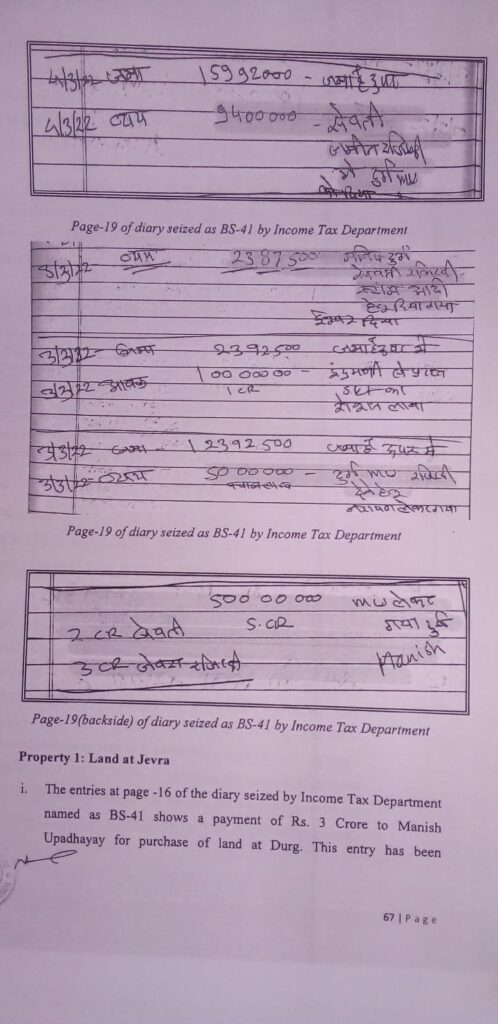 4/3/22 जमा 15992000 - जमा है ऊपर
4/3/22 व्यय 9400000 - सेवती
जमीन रजिस्ट्री
में दुर्ग MU
को दिया
Page-19 of diary seized as BS-41 by Income Tax Department
3/3/22 व्यय 2387500
सेवती रजिस्ट्री
हेतु दिया गया
दिया
3/3/22 - जमा 2392500 जमा है ऊपर में
3/3/22 आवक 10000000 - इंद्रमणी से प्राप्त
1 CR का
लाया
3/3/22 जमा - 12392500 जमा है ऊपर में
3/3/22 - व्यय 5000000 - दुर्ग MU रजिस्ट्री
पचास लाख देने हेतु
लेकर गया
Page-19 of diary seized as BS-41 by Income Tax Department
50000000 MU लेकर
2 CR सेवती 5.CR गया दुर्ग
3 CR जेवरा रजिस्ट्री Manish
Page-19(backside) of diary seized as BS-41 by Income Tax Department
Property 1: Land at Jevra
i. The entries at page -16 of the diary seized by Income Tax Department
named as BS-41 shows a payment of Rs. 3 Crore to Manish
Upadhayay for purchase of land at Durg. This entry has been
67 | Page